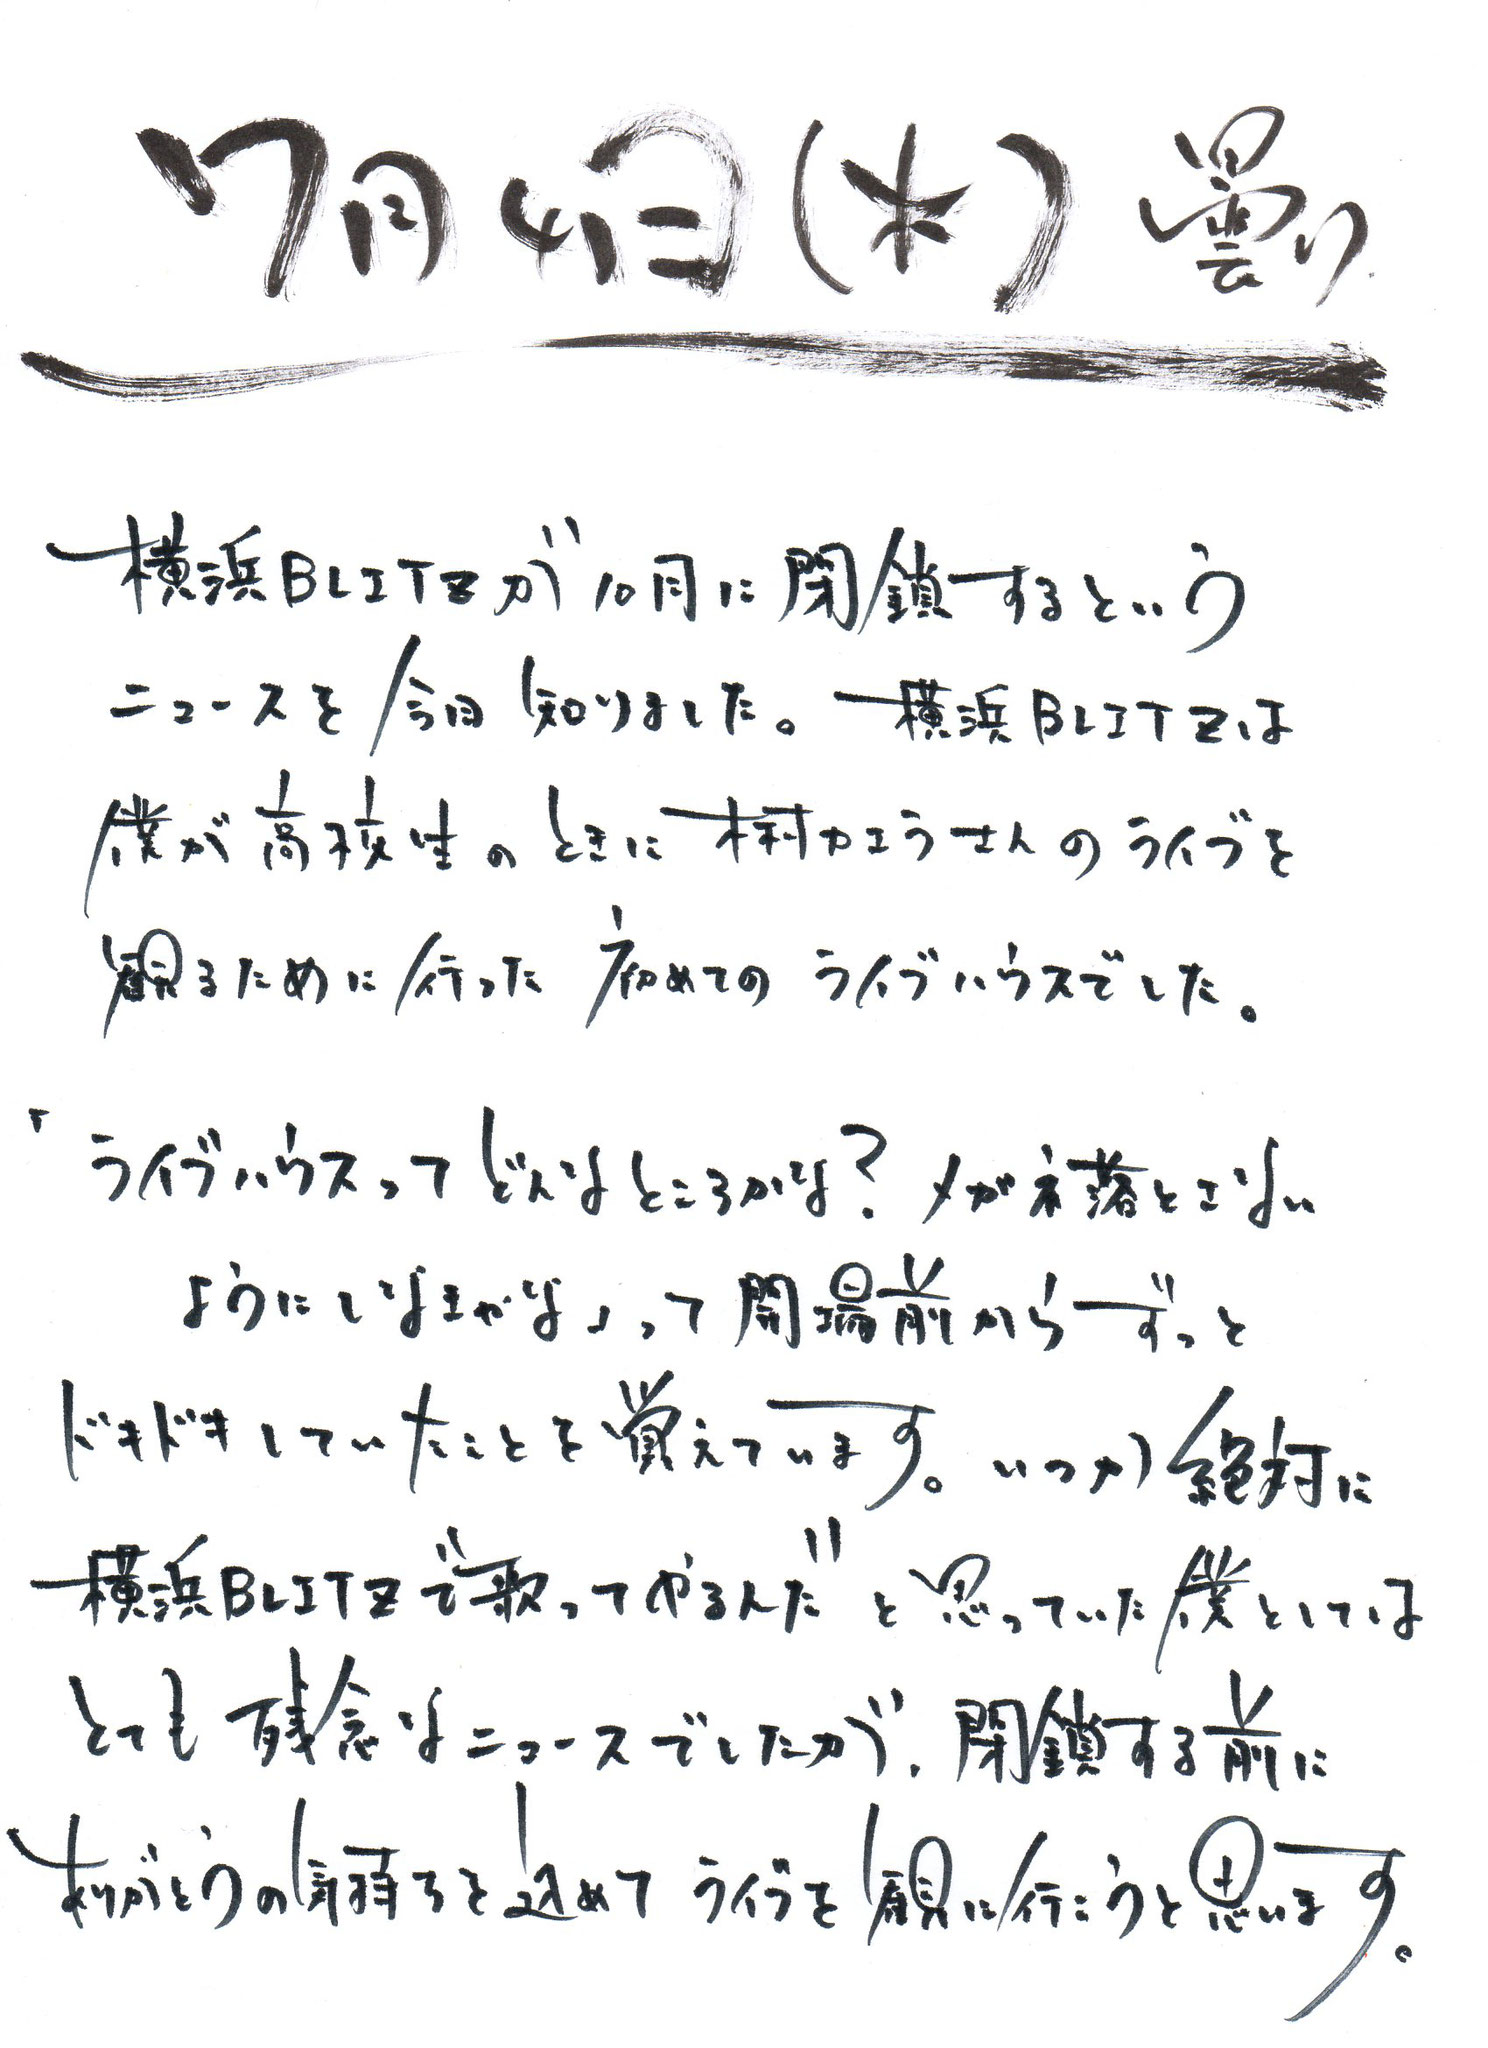 7月4日(木) 曇り
横浜BLITZが10月に閉鎖するという
ニュースを今日知りました。横浜BLITZは
僕が高校生のときに木村カエラさんのライブを
観るために行った初めてのライブハウスでした。
「ライブハウスってどんなところかな?メガネ落とさない
ようにしなきゃな」って開場前からずっと
ドキドキしていたことを覚えています。いつか絶対に
横浜BLITZで歌ってやるんだ"と思っていた僕としては
とても残念なニュースでしたが、閉鎖する前に
ありがとうの気持ちを込めてライブを観に行こうと思います。